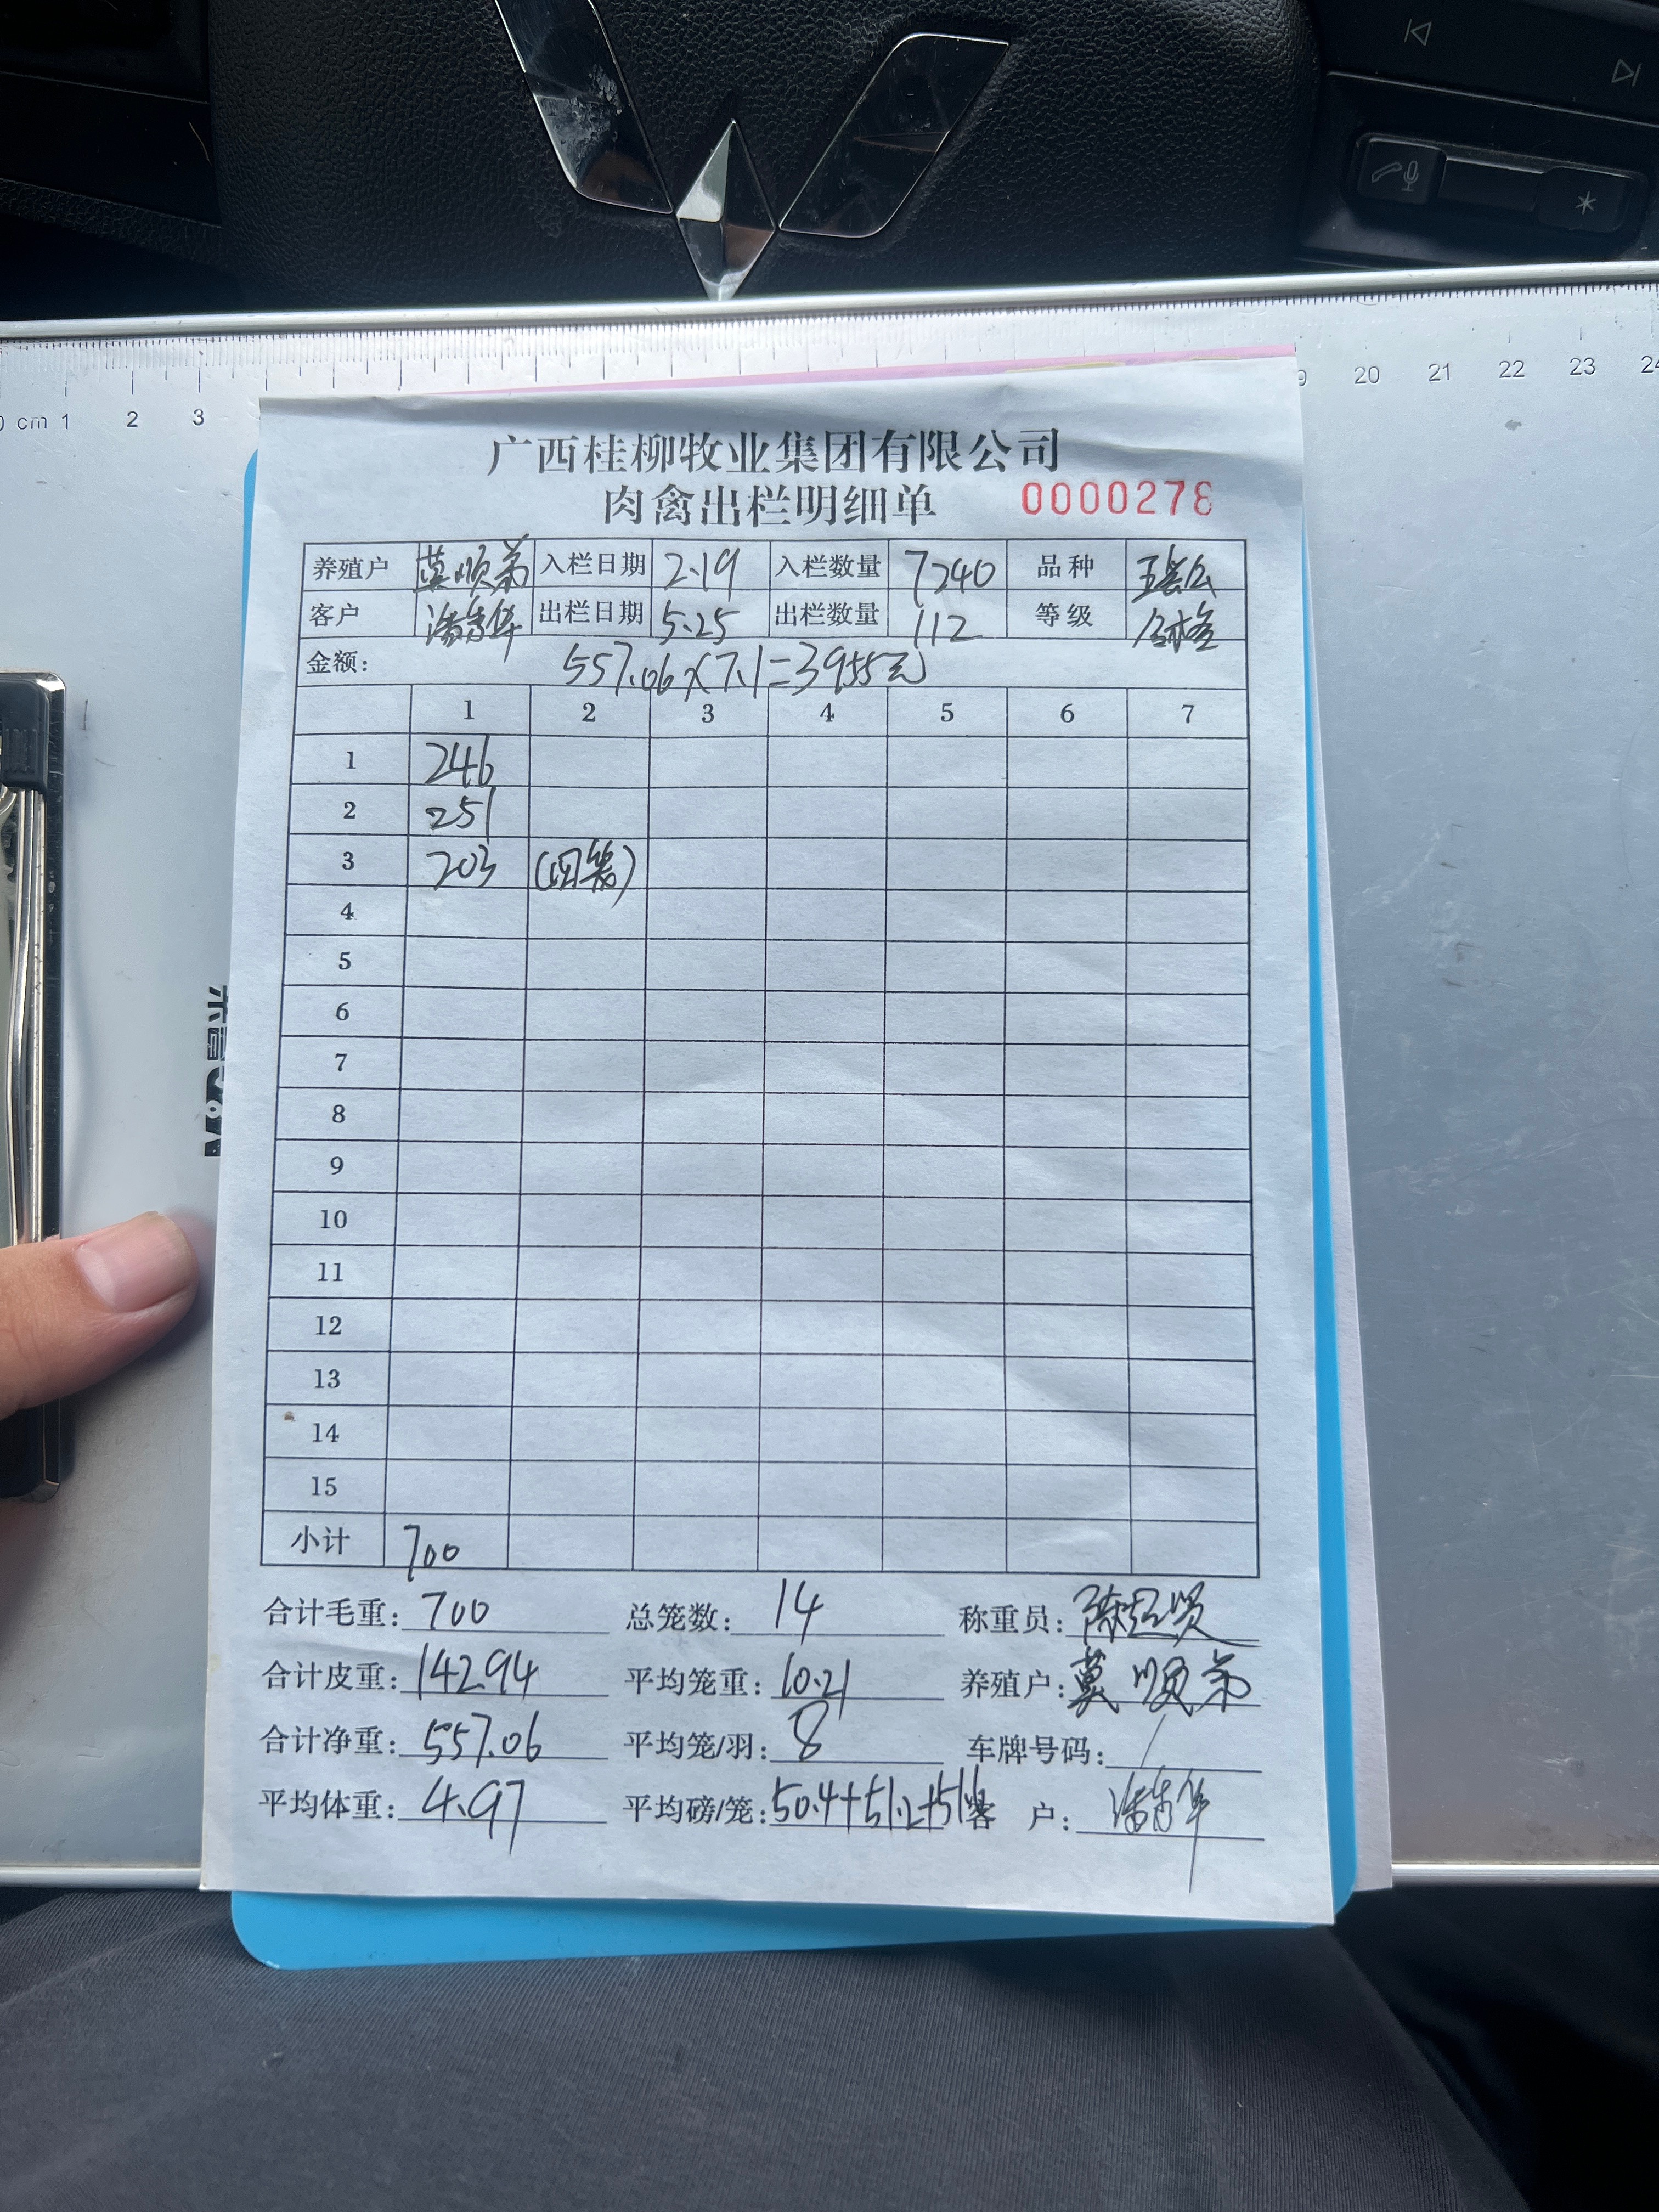 0 cm 1 2 3 20 21 22 23 24
广西桂柳牧业集团有限公司
肉禽出栏明细单 0000278
养殖户 莫顺弟 入栏日期 2.19 入栏数量 7240 品种
客户 出栏日期 5.25 出栏数量 112 等级 合格
金额: 557.06×7.1=3955元
1 2 3 4 5 6 7
1 246
2 251
3 203 (四笼)
4
5
6
7
8
9
10
11
12
13
14
15
小计 700
合计毛重: 700 总笼数: 14 称重员:
合计皮重: 142.94 平均笼重: 10.21 养殖户: 莫顺弟
合计净重: 557.06 平均笼/羽: 8 车牌号码: /
平均体重: 4.97 平均磅/笼: 50.4+51.2+51 客 户: